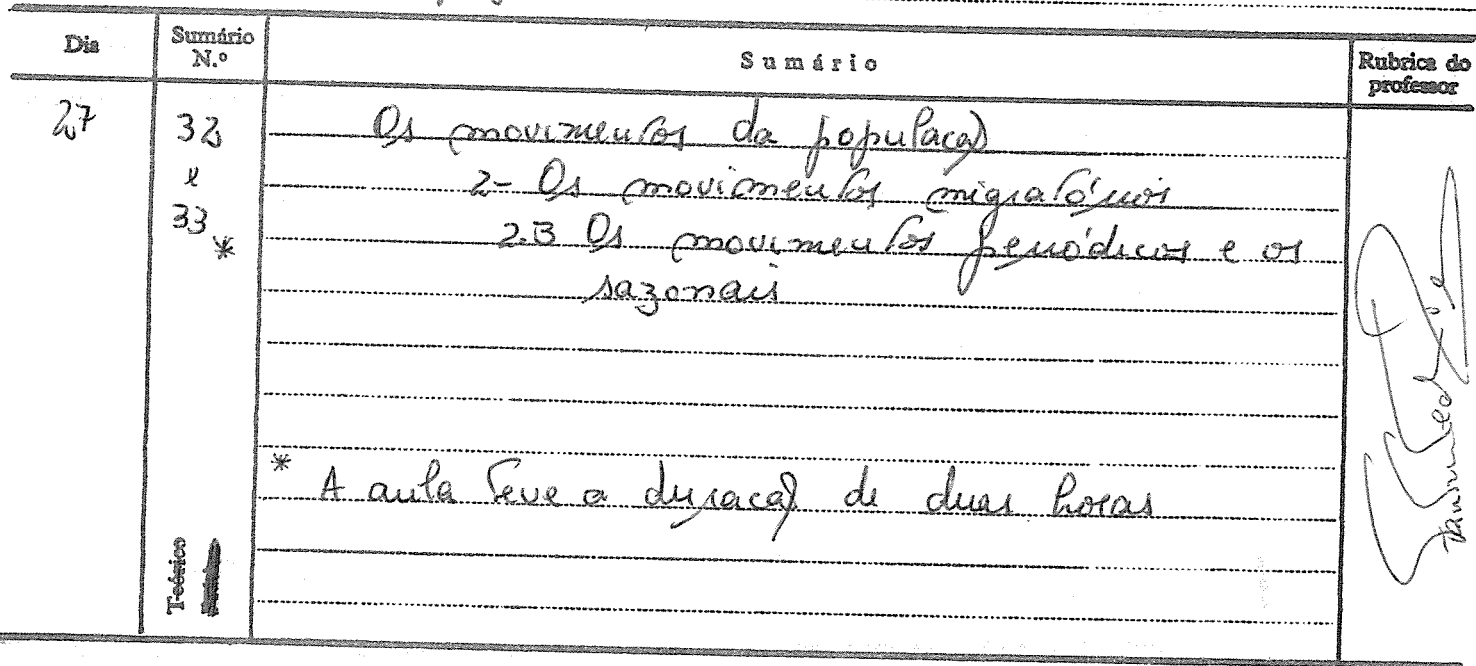 Dia
Sumário N.º
Sumário
Rubrica do professor
27
32 e 33 *
Os movimentos da população
2- Os movimentos migratórios
2.3 Os movimentos periódicos e os
sazonais
* A aula teve a duração de duas horas
Teórico